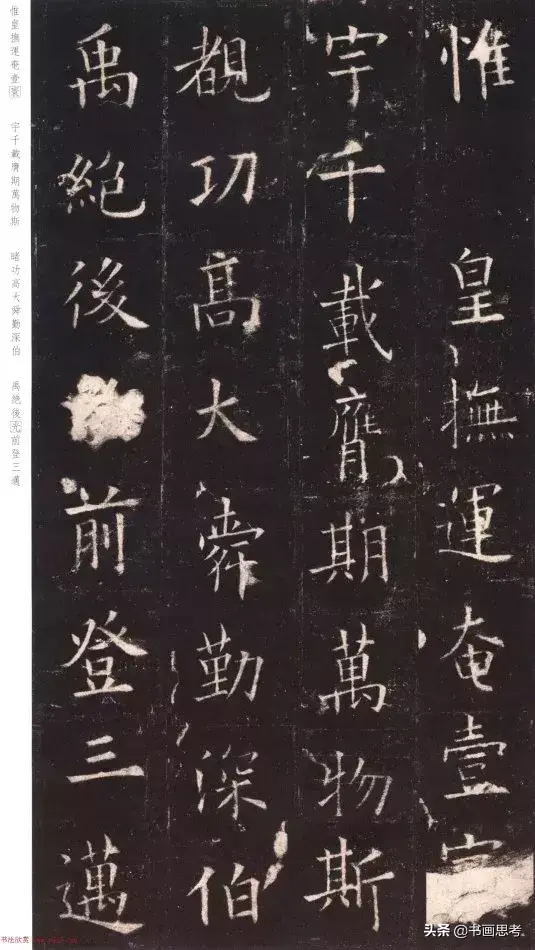 惟皇撫運奄壹
宇千載膺期萬物斯
覩功高大舜勤深伯
禹絕後前登三邁
惟皇撫運奄壹寰 宇千載膺期萬物斯 睹功高大舜勤深伯 禹絕後光前登三邁
头条 @书画思考。